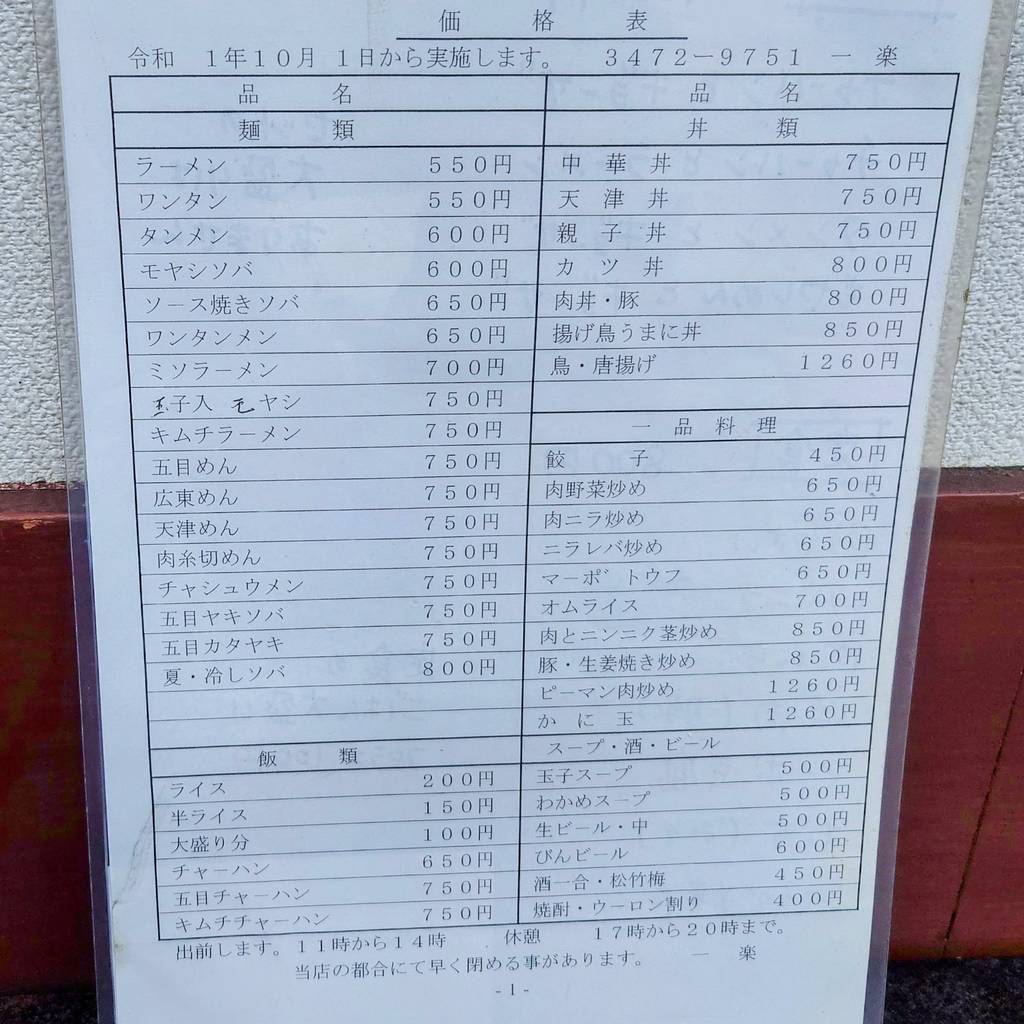 価格表
令和 1年10月 1日から実施します。 3472-9751 一 楽
品 名
麺 類
ラーメン 550円
ワンタン 550円
タンメン 600円
モヤシソバ 600円
ソース焼きソバ 650円
ワンタンメン 650円
ミソラーメン 700円
玉子入 モヤシ 750円
キムチラーメン 750円
五目めん 750円
広東めん 750円
天津めん 750円
肉糸切めん 750円
チャシュウメン 750円
五目ヤキソバ 750円
五目カタヤキ 750円
夏・冷しソバ 800円
飯 類
ライス 200円
半ライス 150円
大盛り分 100円
チャーハン 650円
五目チャーハン 750円
キムチチャーハン 750円
品 名
丼 類
中 華 丼 750円
天 津 丼 750円
親 子 丼 750円
カ ツ 丼 800円
肉丼・豚 800円
揚げ鳥うまに丼 850円
鳥・唐揚げ 1260円
一 品 料 理
餃 子 450円
肉野菜炒め 650円
肉ニラ炒め 650円
ニラレバ炒め 650円
マーボ゛トウフ 650円
オムライス 700円
肉とニンニク茎炒め 850円
豚・生姜焼き炒め 850円
ピーマン肉炒め 1260円
か に 玉 1260円
スープ・酒・ビール
玉子スープ 500円
わかめスープ 500円
生ビール・中 500円
びんビール 600円
酒一合・松竹梅 450円
焼酎・ウーロン割り 400円
出前します。11時から14時 休憩 17時から20時まで。
当店の都合にて早く閉める事があります。 一 楽
- 1 -